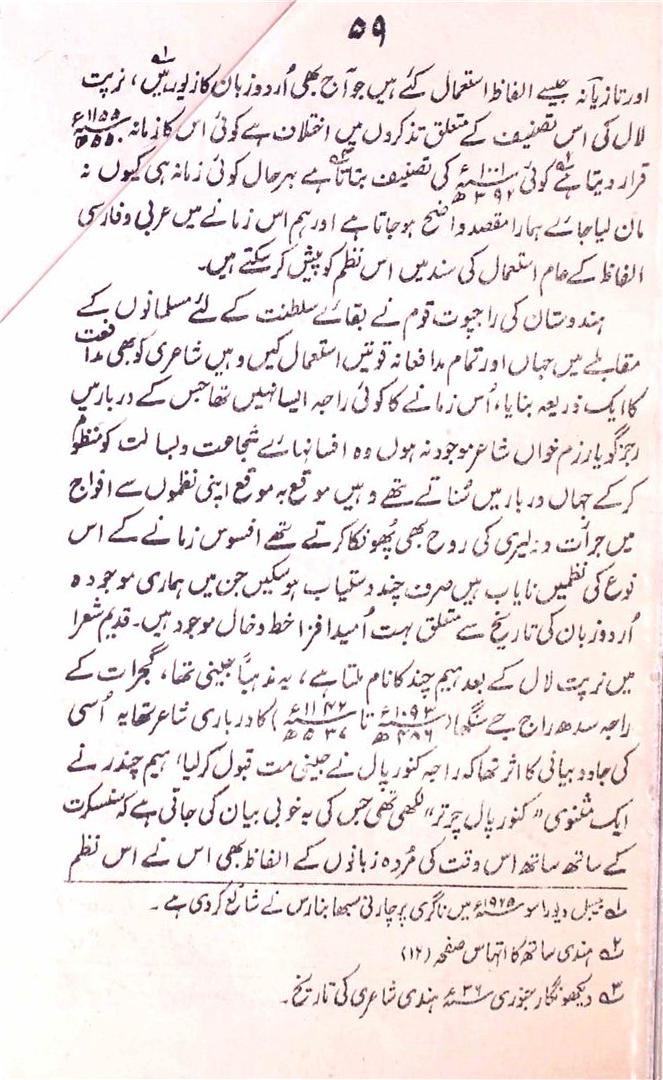 ۵۹
اور تازیانہ جیسے الفاظ استعمال کئے ہیں جو آج بھی اُردو زبان کا زیور ہیں؂۱، نرپت
لال کی اس تصنیف کے متعلق تذکروں میں اختلاف ہے کوئی اس کا زمانہ ۱۱۵۵ء ۵۵۰ھ
قرار دیتا ہے؂۲ کوئی ۱۰۰۱ء ۳۹۲ھ کی تصنیف بتاتا ہے؂۳ بہرحال کوئی زمانہ ہی کیوں نہ
مان لیا جائے ہمارا مقصد واضح ہوجاتا ہے اور ہم اس زمانے میں عربی و فارسی
الفاظ کے عام استعمال کی سند میں اس نظم کو پیش کرسکتے ہیں۔
ہندوستان کی راجپوت قوم نے بقائے سلطنت کے لئے مسلمانوں کے
مقابلے میں جہاں اور تمام مدافعانہ قوتیں استعمال کیں وہیں شاعری کو بھی مدافعت
کا ایک ذریعہ بنایا، اُس زمانے کا کوئی راجہ ایسا نہیں تھا جس کے دربار میں
رجز گو یا رزم خواں شاعر موجود نہ ہوں وہ افسانہائے شجاعت و بسالت کو منظوم
کرکے جہاں دربار میں سُناتے تھے وہیں موقع بہ موقع اپنی نظموں سے افواج
میں جرأت و دلیری کی روح بھی پُھونکا کرتے تھے افسوس زمانے کے اس
نوع کی نظمیں نایاب ہیں صرف چند دستیاب ہوسکیں جن میں ہماری موجودہ
اُردو زبان کی تاریخ سے متعلق بہت اُمید افزا خط و خال موجود ہیں۔ قدیم شعرا
میں نرپت لال کے بعد ہیم چند کا نام ملتا ہے، یہ مذہباً جینی تھا، گجرات کے
راجہ سدھ راج جے سنگھا (۱۰۹۳ء ۴۸۶ھ تا ۱۱۴۲ء ۵۳۷ھ) کا درباری شاعر تھا یہ اُسی
کی جادو بیانی کا اثر تھا کہ راجہ کنور پال نے جینی مت قبول کرلیا، ہیم چندر نے
ایک مثنوی "کنور پال چرتر" لکھی تھی جس کی یہ خوبی بیان کی جاتی ہے کہ سنسکرت
کے ساتھ ساتھ اس وقت کی مُردہ زبانوں کے الفاظ بھی اس نے اس نظم
؂۱ بیسل دیو راسو ۱۹۲۵ء میں ناگری پرچارنی سبھا بنارس نے شائع کردی ہے۔
؂۲ ہندی ساتھ کا اتہاس صفحہ (۱۲)
؂۳ دیکھو نگار جنوری ۳۶ء ہندی شاعری کی تاریخ۔